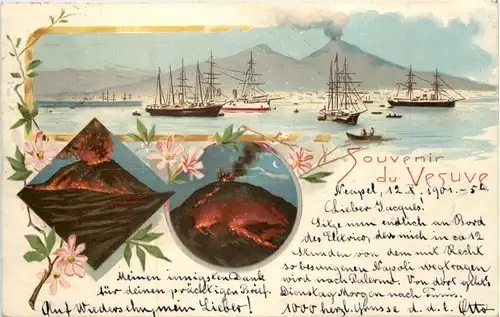 Souvenir
du Vesuve
Neapel, 12.X.1901.-5
Lieber Jacques!
Sitze nun endlich an Bord
des Elektrico, der mich in ca 12
Stunden von dem mit Recht
so besungenen Napoli wegtragen
wird nach Palermo. Von dort geht's
Dienstag Morgen nach Tunis.
1000 herzl. Grüsse d. d. l. Otto
Meinen innigsten Dank
für deinen prächtigen Brief.
Auf Wiedersehn, mein Lieber!